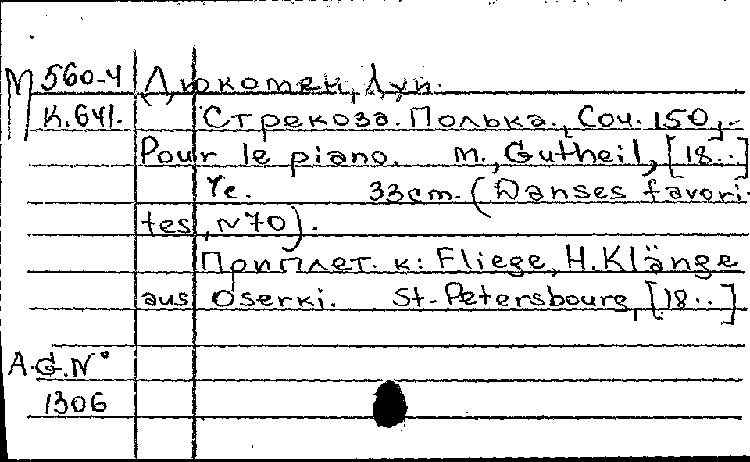 М 560-4 Дюкомен, Луи.
К.641. Стрекоза. Полька., Соч. 150,-
Pour le piano. М., Gutheil, [18..]
7с. 33cm. (Danses favori-
tes, N70).
Приплет. к: Fliege, H. Klänge
aus Oserki. St-Petersbourg, [18..]
A.G.N°
1306